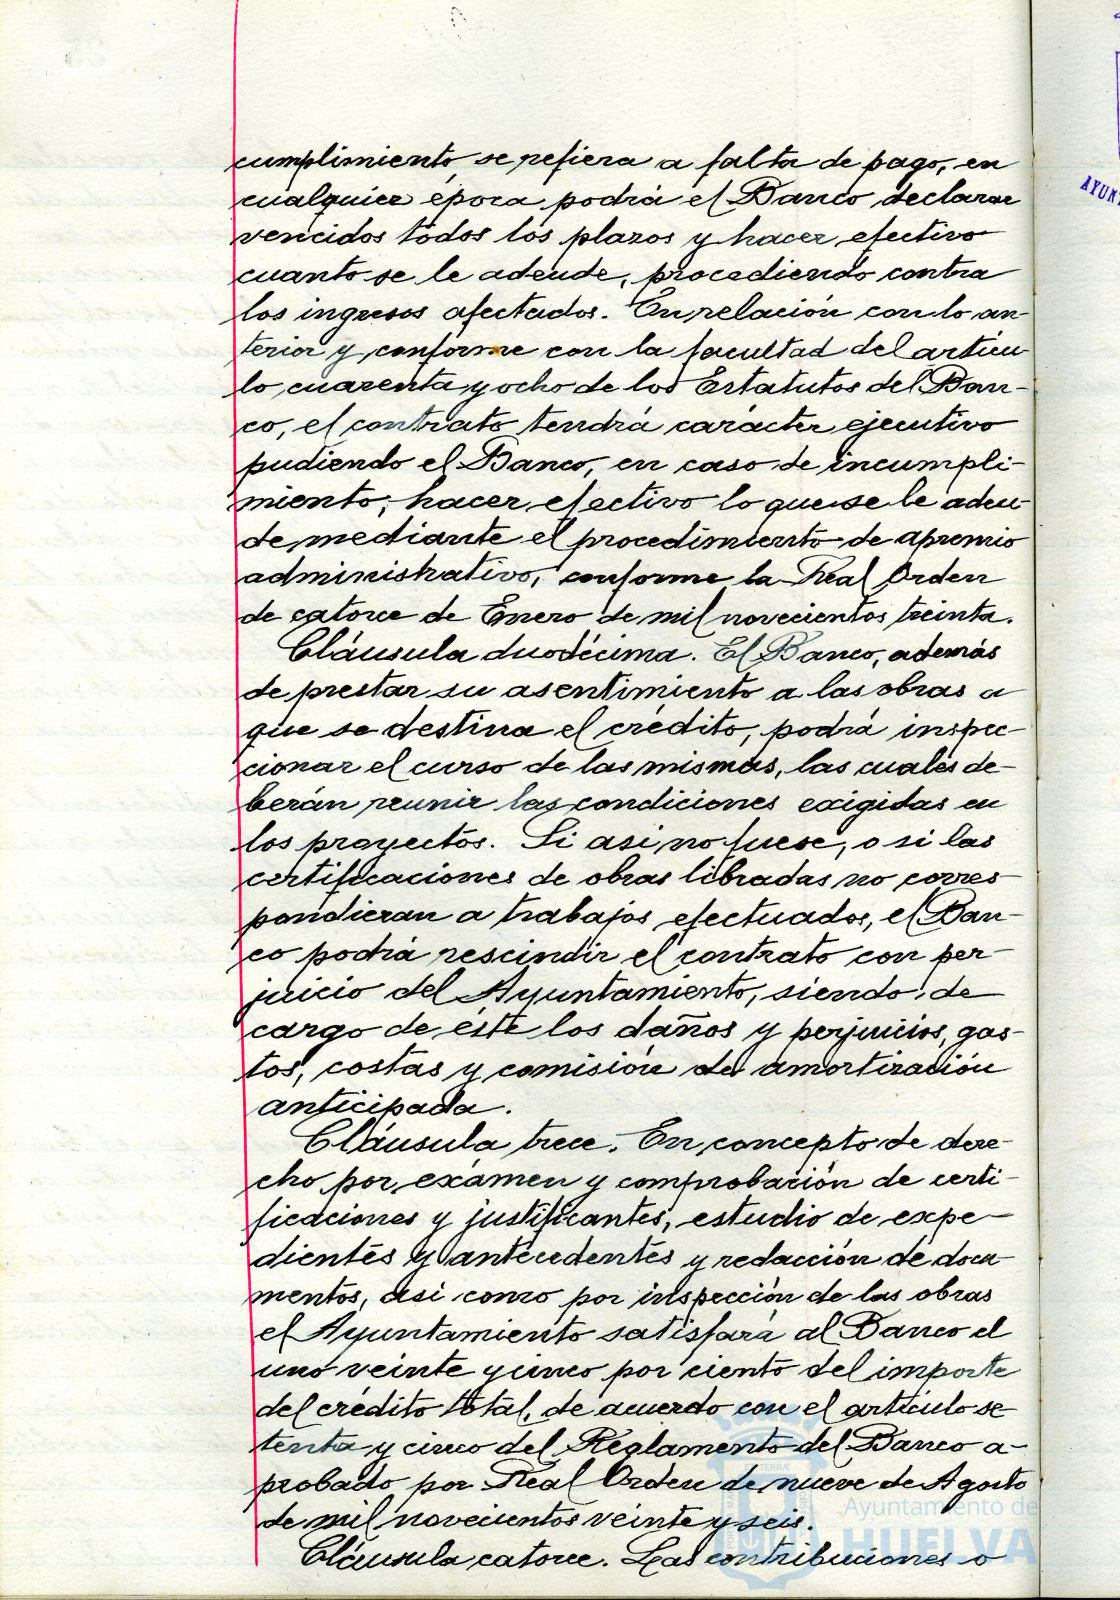 cumplimiento, se refiera a falta de pago, en
cualquier época podrá el Banco declarar
vencidos todos los plazos y hacer efectivo
cuanto se le adeude, procediendo contra
los ingresos afectados. En relación con lo an-
terior y conforme con la facultad del artícu
lo cuarenta y ocho de los Estatutos del Ban-
co, el contrato tendrá carácter ejecutivo
pudiendo el Banco, en caso de incumpli-
miento, hacer efectivo lo que se le adeu-
de mediante el procedimiento de apremio
administrativo, conforme la Real Orden
de catorce de Enero de mil novecientos treinta.
Cláusula duodécima. El Banco, además
de prestar su asentimiento a las obras a
que se destina el crédito, podrá inspec-
cionar el curso de las mismas, las cuales de-
berán reunir las condiciones exigidas en
los proyectos. Si asi no fuese, o si las
certificaciones de obras libradas no corres-
pondieran a trabajos efectuados, el Ban-
co podrá rescindir el contrato con per-
juicio del Ayuntamiento, siendo de
cargo de éste los daños y perjuicios, gas-
tos, costas y comisión de amortización
anticipada.
Cláusula trece. En concepto de dere-
cho por exámen y comprobación de certi-
ficaciones y justificantes, estudio de expe-
dientes y antecedentes y redacción de docu-
mentos, asi como por inspección de las obras
el Ayuntamiento satisfará al Banco el
uno veinte y cinco por ciento del importe
del crédito total, de acuerdo con el artículo se
tenta y cinco del Reglamento del Banco a-
probado por Real Orden de nueve de Agosto
de mil novecientos veinte y seis.
Cláusula catorce. Las contribuciones o
Ayuntamiento de
HUELVA
AYUN